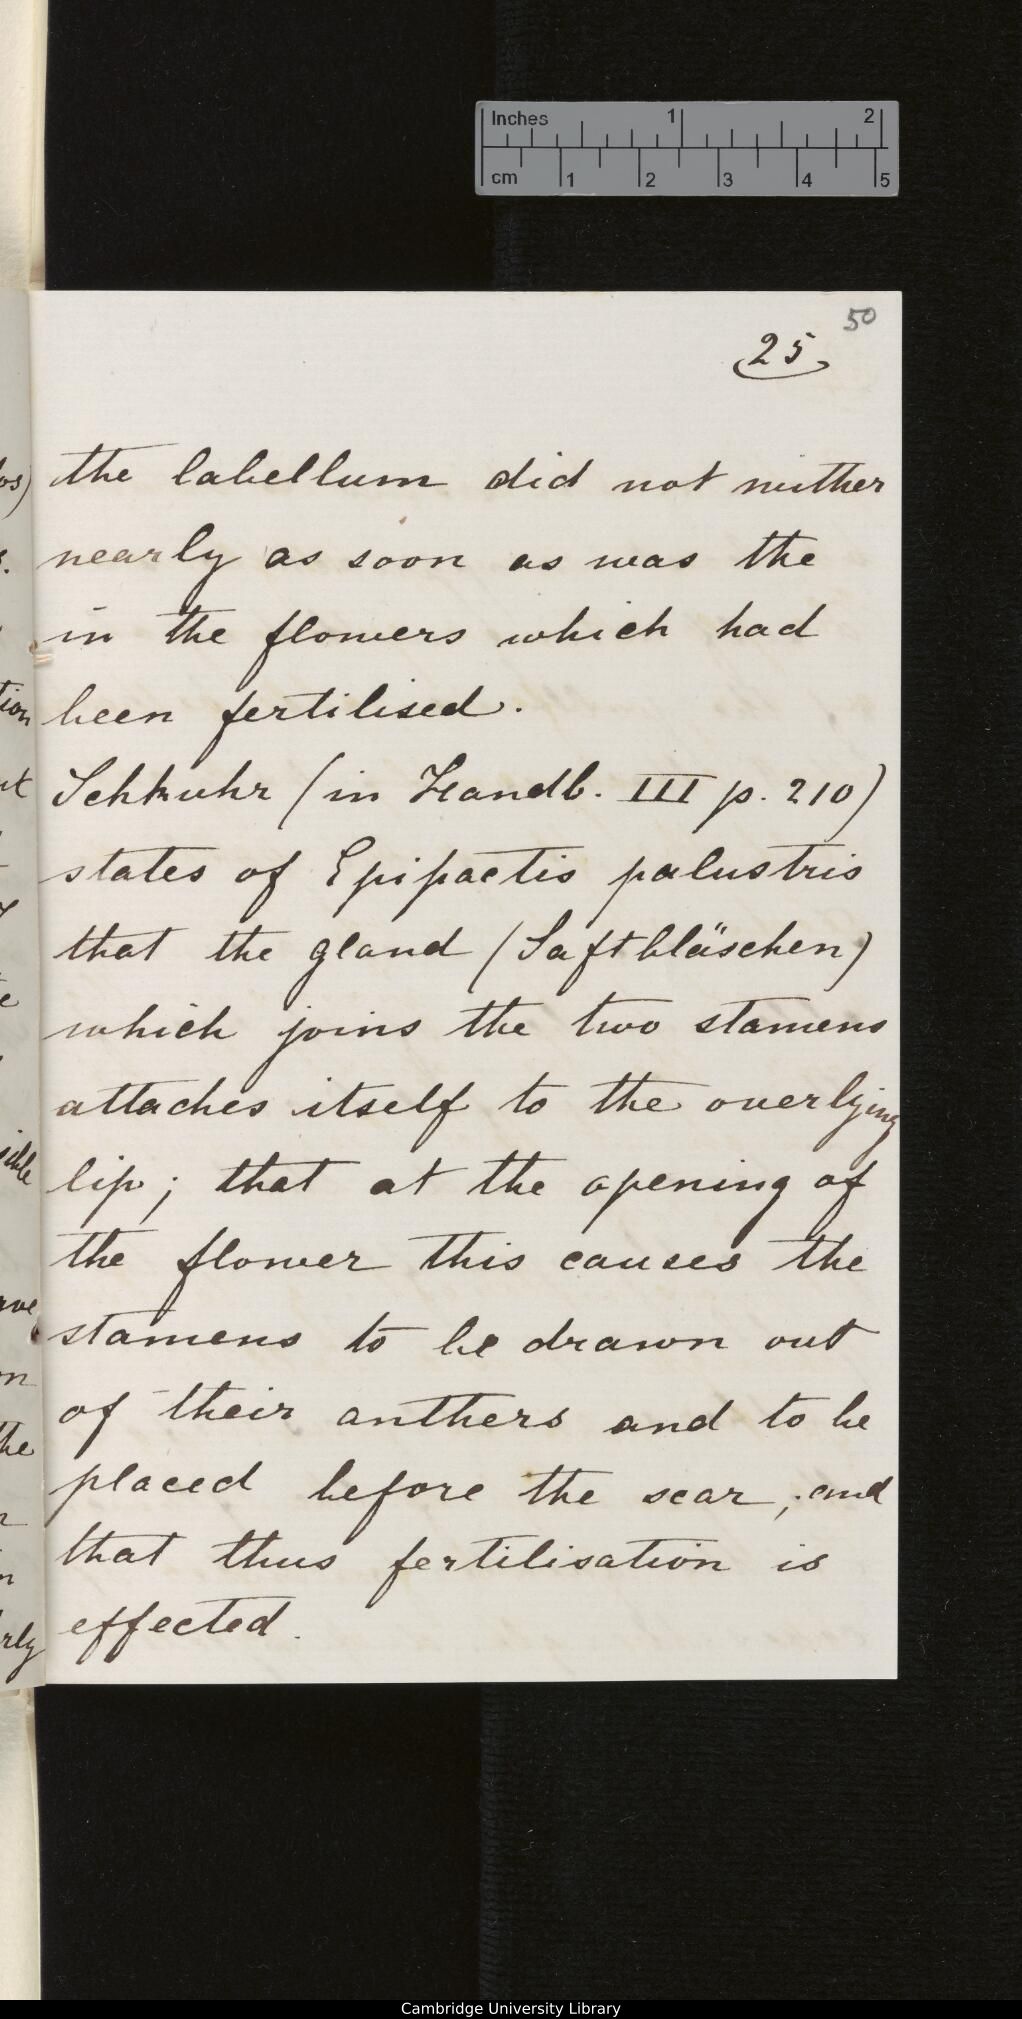 Inches 1 2
cm 1 2 3 4 5
50
25
the labellum did not neither
nearly as soon as was the
in the flowers which had
been fertilised.
Schkuhr (in Handb. III p. 210)
states of Epipactis palustris
that the gland (Saftbläschen)
which joins the two stamens
attaches itself to the overlying
lip; that at the opening of
the flower this causes the
stamens to be drawn out
of their anthers and to be
placed before the scar; and
that thus fertilisation is
effected.
Cambridge University Library